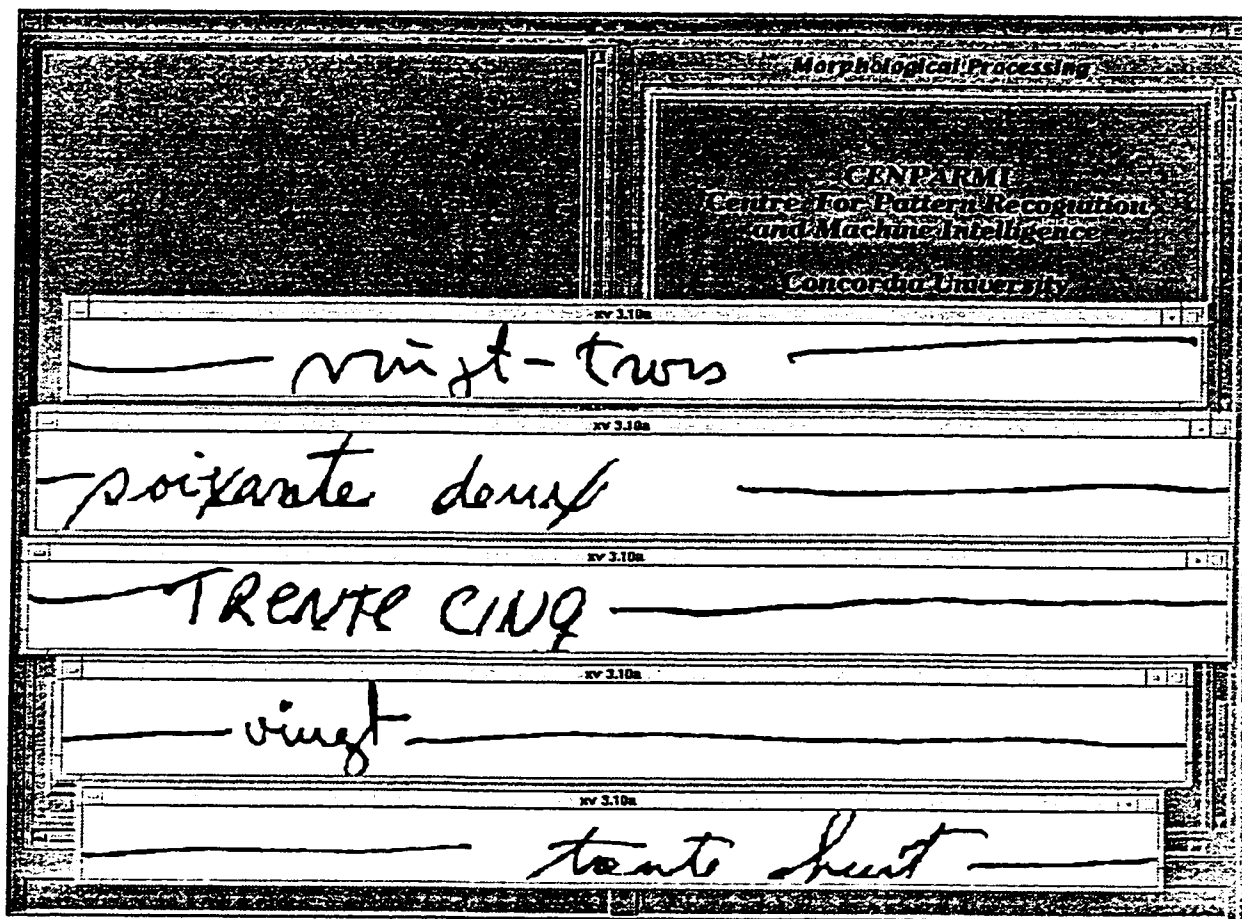 Morphological Processing
CENPARMI
Centre For Pattern Recognition
and Machine Intelligence
Concordia University
xv 3.10a
vingt-trois
xv 3.10a
soixante deux
xv 3.10a
TRENTE CINQ
xv 3.10a
vingt
xv 3.10a
trente huit